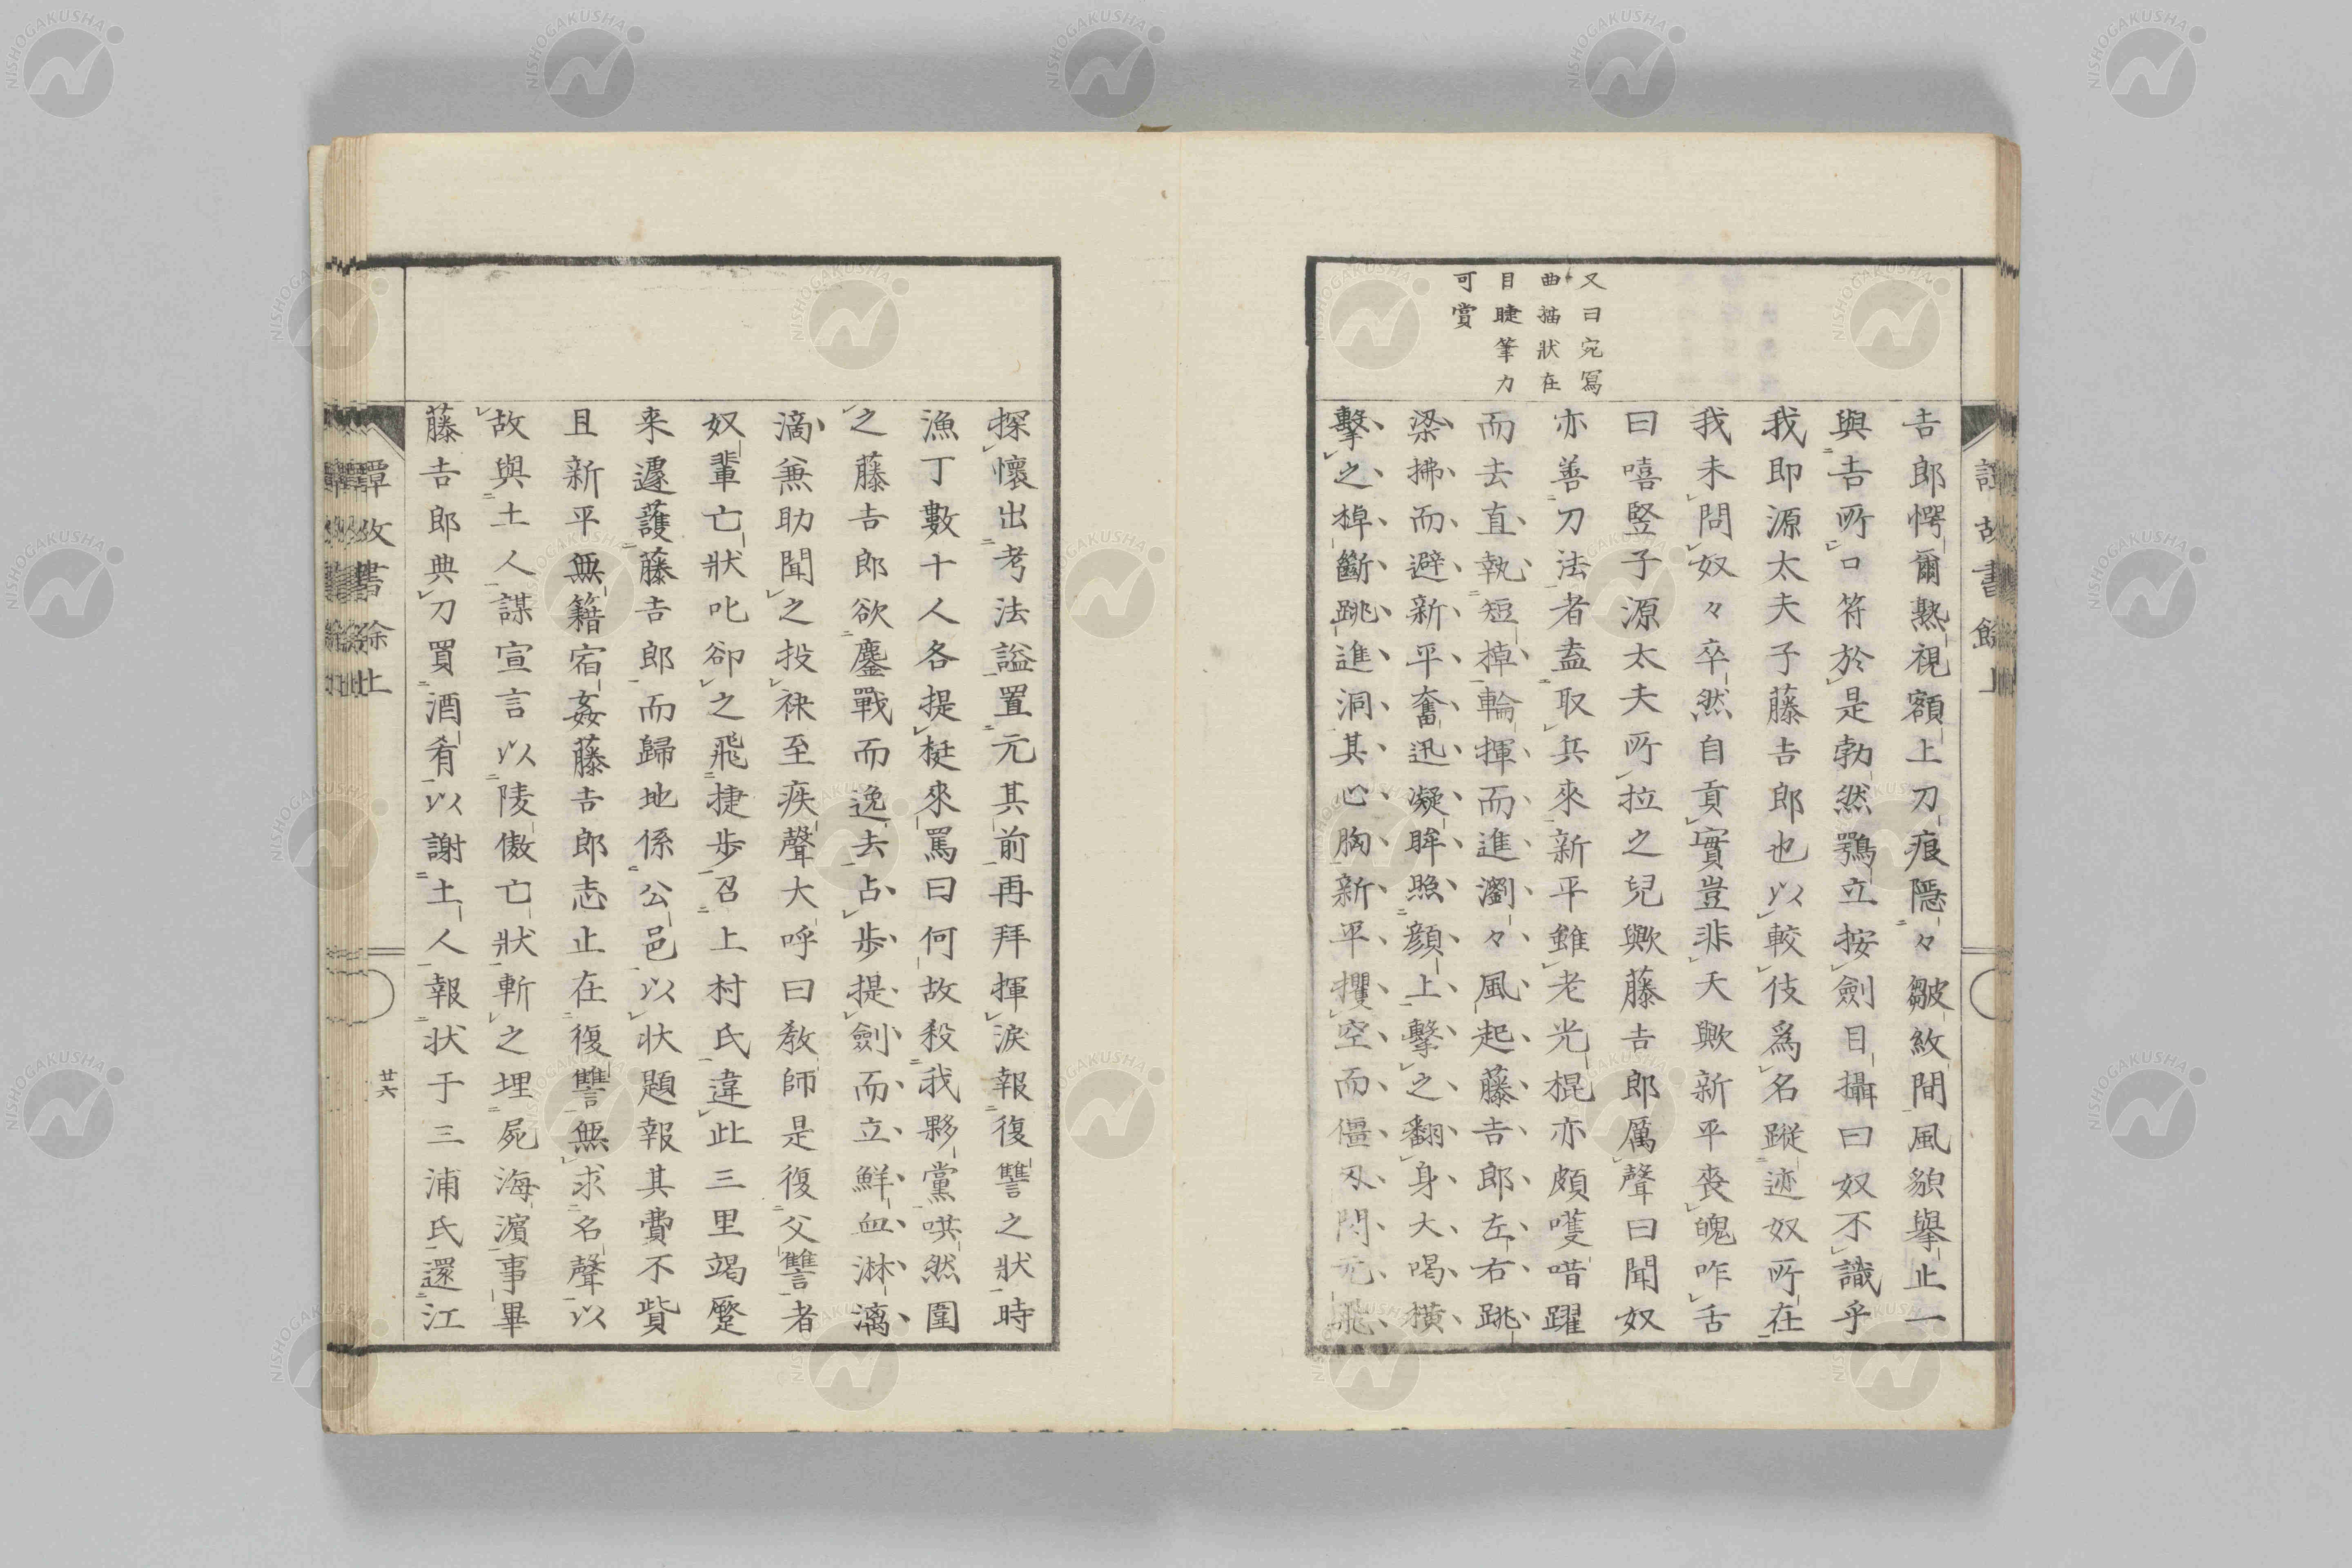 又曰宛寫
曲描狀在
目睫筆力
可賞
吉郎愕爾熟視額上刀痕隱々皺紋間風貌擧止一
與吉所口符於是勃然鶚立按劍目攝曰奴不識乎
我即源太夫子藤吉郎也以較伎爲名蹤迹奴所在
我未問奴々卒然自貢實豈非天歟新平喪魄咋舌
曰嘻豎子源太夫所拉之兒歟藤吉郎厲聲曰聞奴
亦善刀法者盍取兵來新平雖老光棍亦頗嚄唶躍
而去直執短棹輪揮而進瀏々風起藤吉郎左右跳
梁拂而避新平奮迅凝眸照顔上擊之翻身大喝橫
擊之棹斷跳進洞其心胸新平攫空而僵刄閃元飛
探懷出考法謚置元其前再拜揮淚報復讐之狀時
漁丁數十人各提梃來罵曰何故殺我夥黨哄然圍
之藤吉郎欲鏖戰而逸去占步提劍而立鮮血淋漓
滴兼助聞之投袂至疾聲大呼曰敎師是復父讐者
奴輩亡狀叱卻之飛捷步召上村氏違此三里竭蹷
來遽護藤吉郎而歸地係公邑以狀題報其費不貲
且新平無籍宿姦藤吉郎志止在復讐無求名聲以
故與土人謀宣言以陵傲亡狀斬之埋屍海濱事畢
藤吉郎典刀買酒肴以謝土人報状于三浦氏還江
譚故書餘上
廿六
譚故書餘上